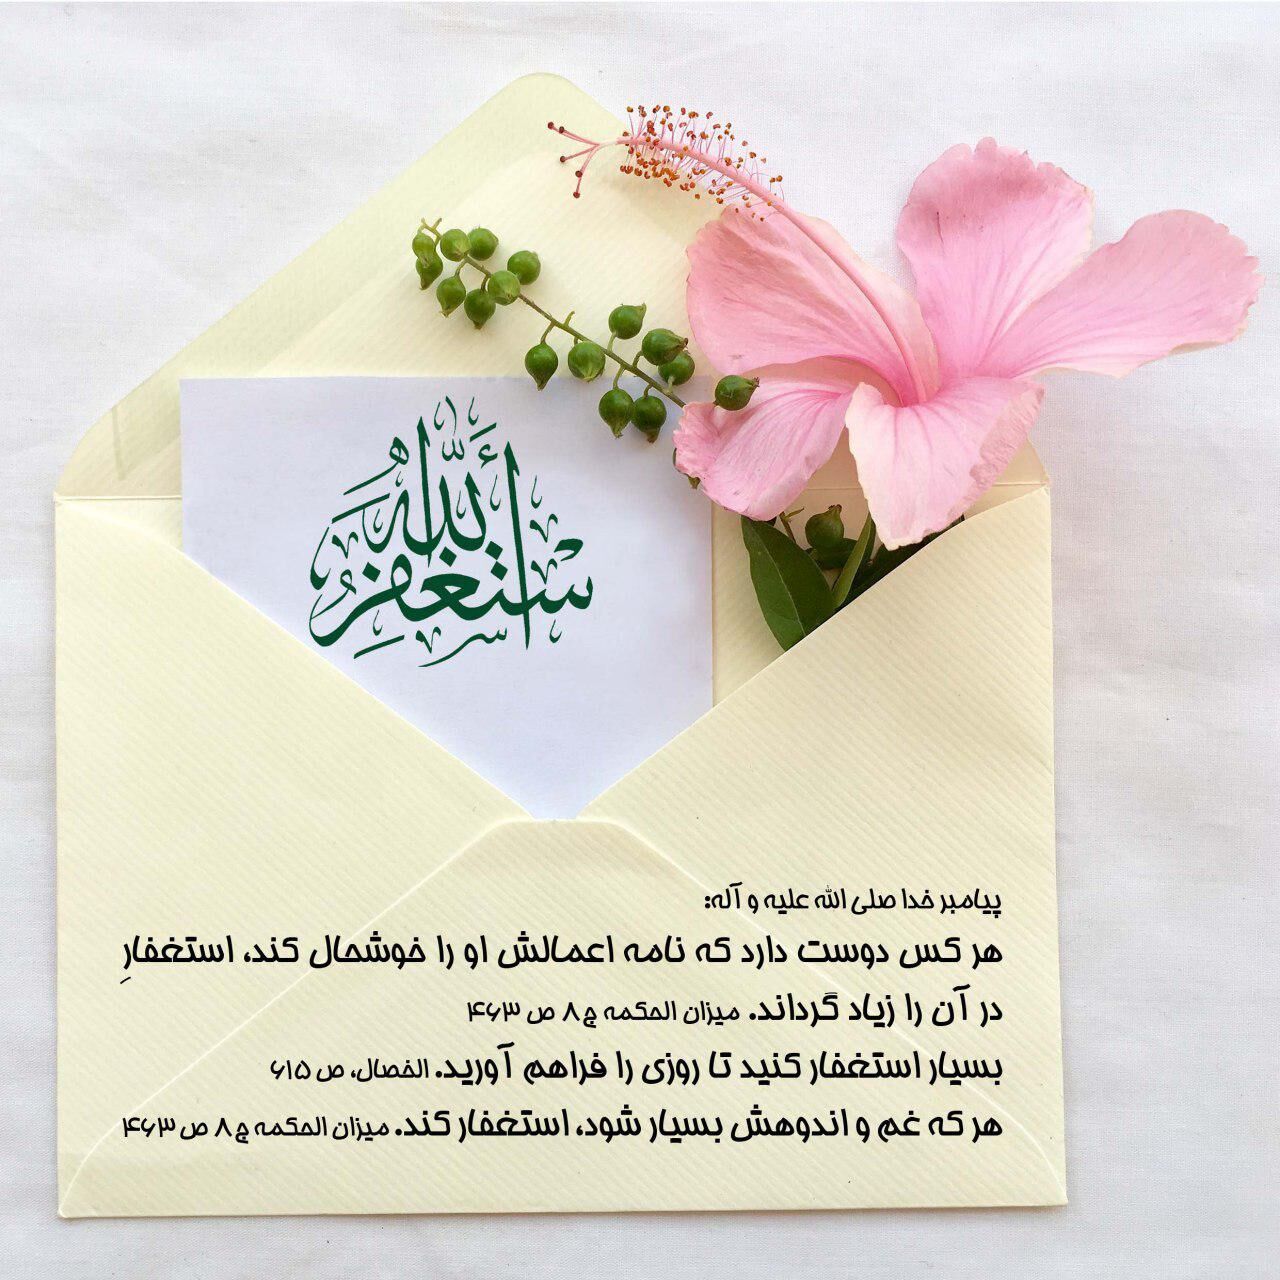 أستغفر الله
پیامبر خدا صلی الله علیه و آله:
هر کس دوست دارد که نامه اعمالش او را خوشحال کند، استغفارِ
در آن را زیاد گرداند. میزان الحکمه ج۸ ص ۴۶۳
بسیار استغفار کنید تا روزی را فراهم آورید. الخصال، ص ۶۱۵
هر که غم و اندوهش بسیار شود، استغفار کند. میزان الحکمه ج۸ ص ۴۶۳